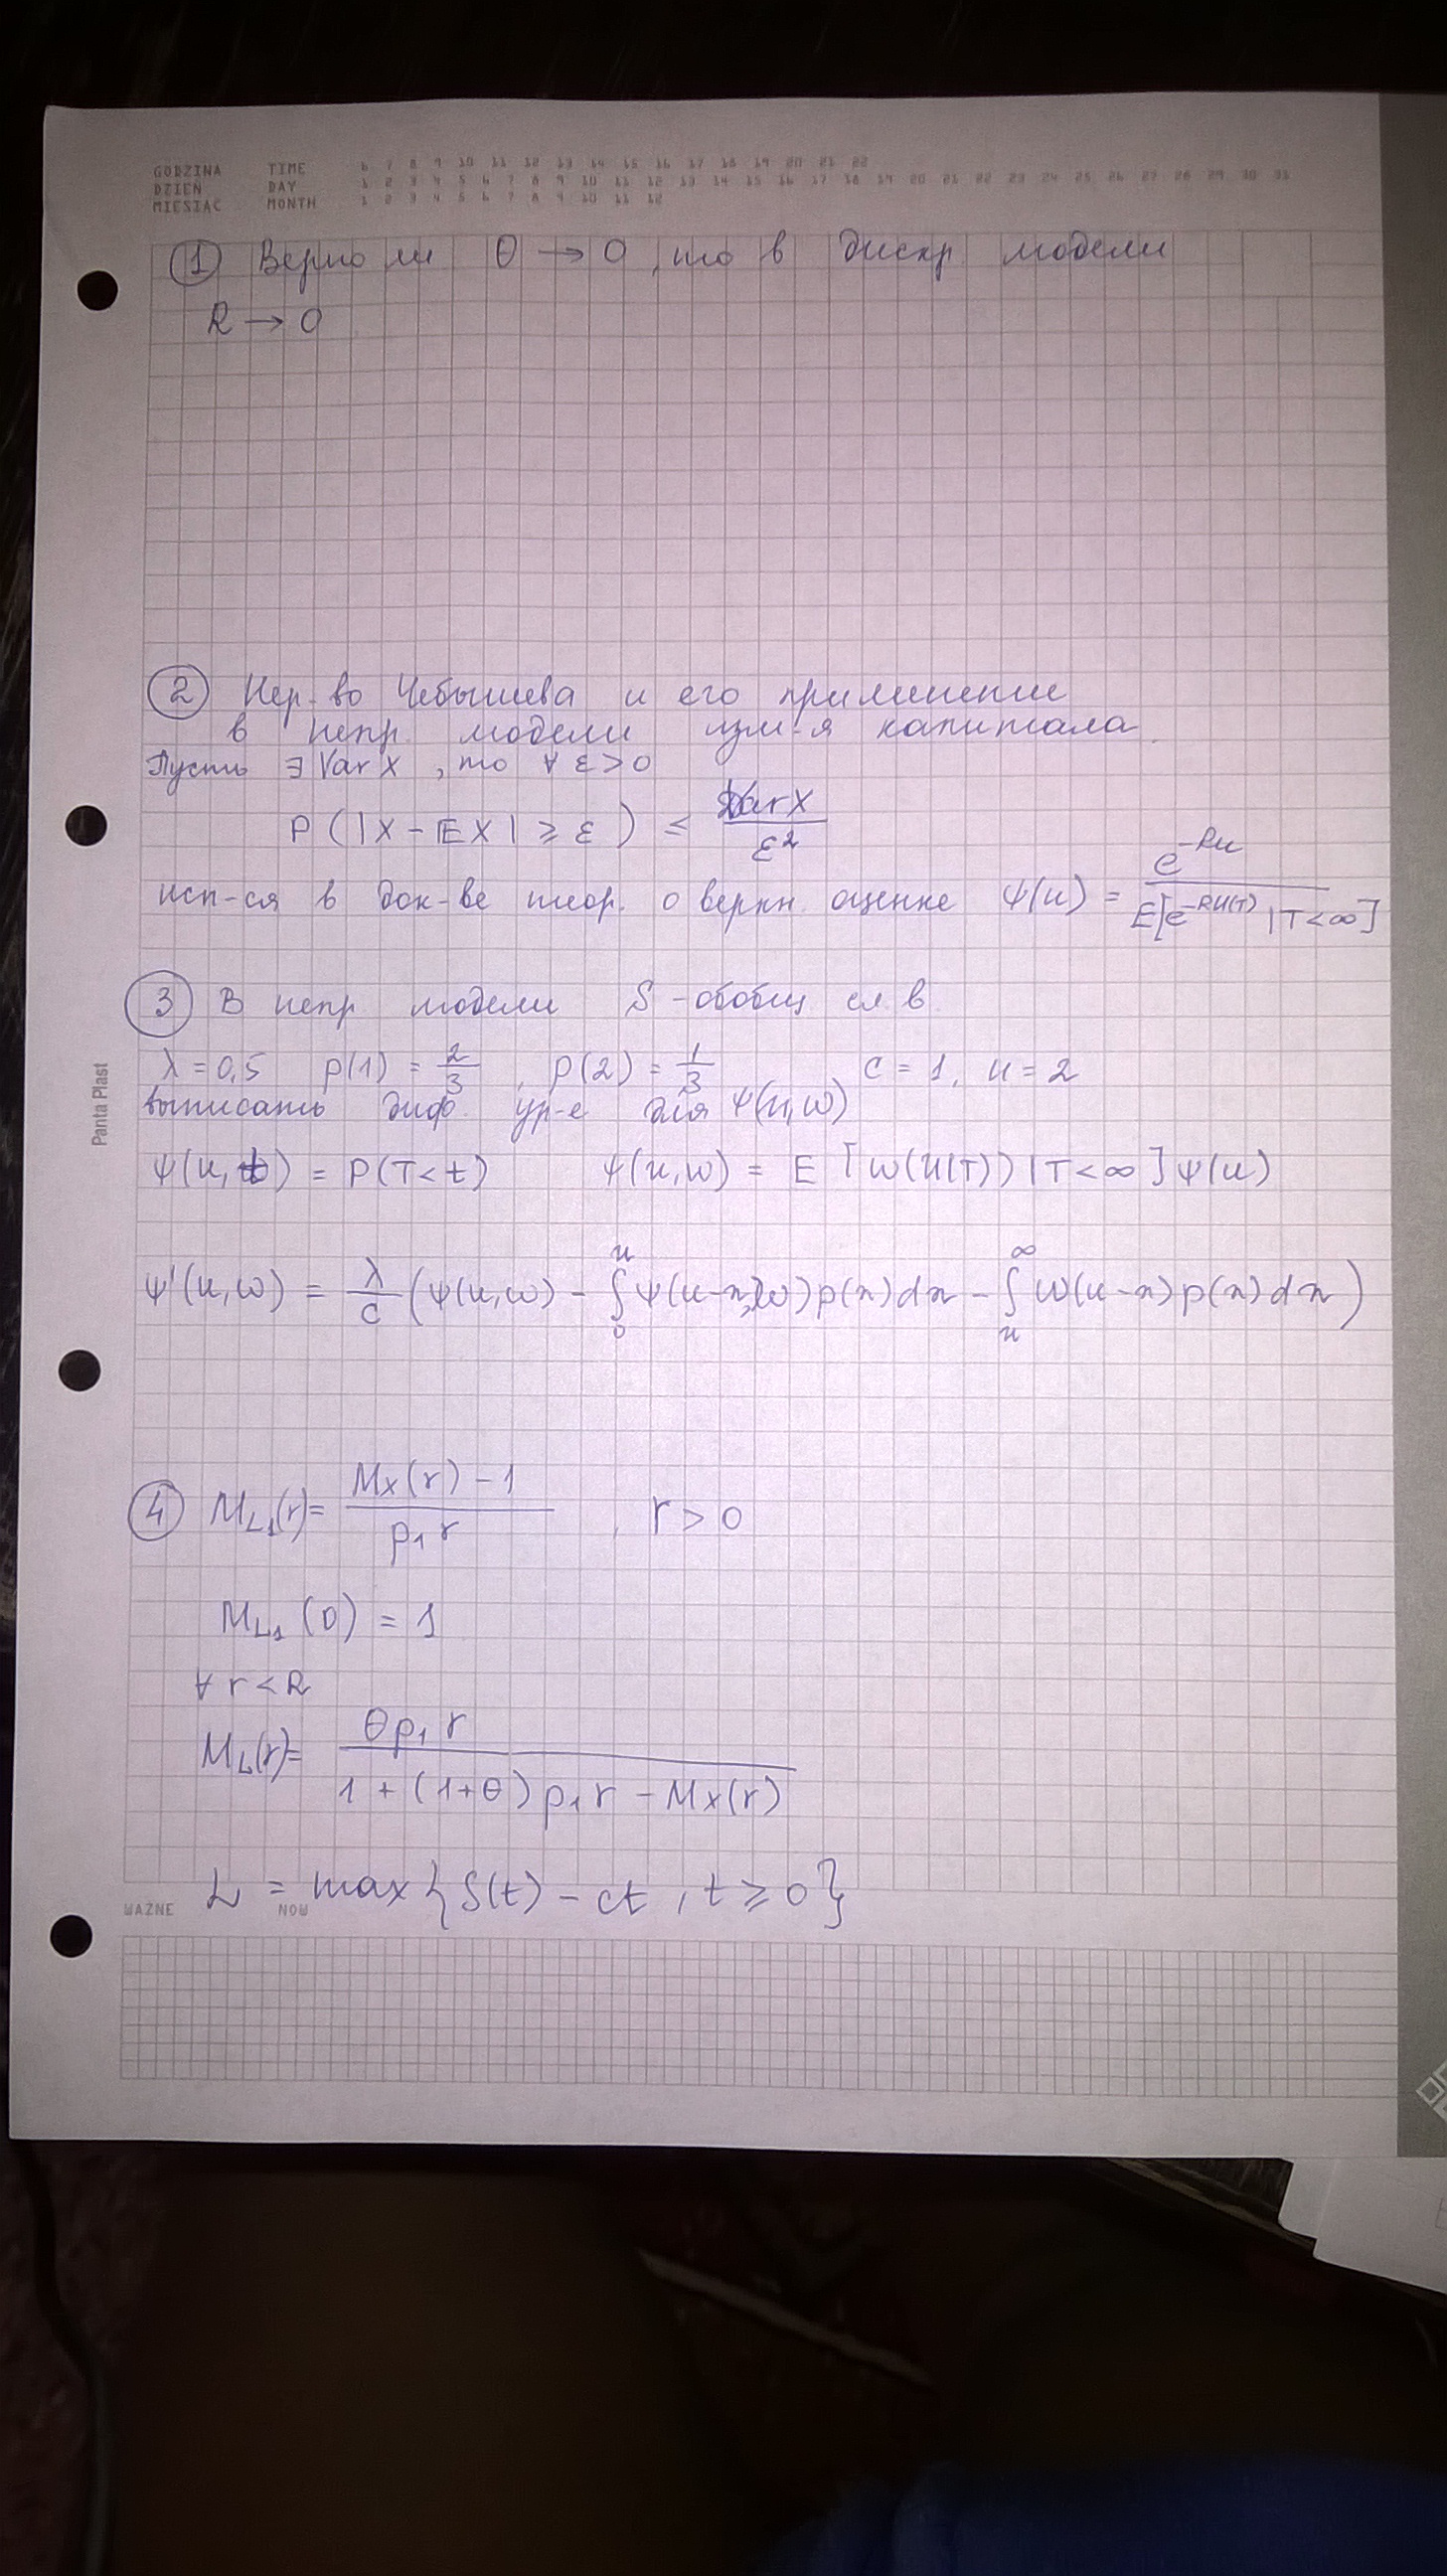 GODZINA TIME 6 7 8 9 10 11 12 13 14 15 16 17 18 19 20 21 22
DZIEŃ DAY 1 2 3 4 5 6 7 8 9 10 11 12 13 14 15 16 17 18 19 20 21 22 23 24 25 26 27 28 29 30 31
MIESIĄC MONTH 1 2 3 4 5 6 7 8 9 10 11 12
① Верно ли θ → 0, то в дискр модели
R → 0
② Нер-во Чебышева и его применение
в непр. модели изм-я капитала.
Пусть ∃ Var X, то ∀ ε > 0
P(|X - EX| ≥ ε) ≤ VarX / ε²
исп-ся в док-ве теор. о верхн. оценке ψ(u) = e^{-Ru} / E[e^{-RU(T)} | T < ∞]
③ В непр модели S - обобщ сл в
λ = 0,5 p(1) = 2/3, p(2) = 1/3, c = 1, u = 2
выписать диф. ур-е для ψ(u, w)
ψ(u, t) = P(T < t) ψ(u, w) = E [w(U(T)) | T < ∞] ψ(u)
ψ'(u, w) = λ/c (ψ(u, w) - ∫₀ᵘ ψ(u-x, w) p(x) dx - ∫ᵤ^∞ w(u-x) p(x) dx)
④ M_{L₁}(r) = (Mx(r) - 1) / (p₁ r), r > 0
M_{L₁}(0) = 1
∀ r < R
M_L(r) = θ p₁ r / (1 + (1+θ) p₁ r - Mx(r))
L = max {S(t) - ct, t ≥ 0}
WAŻNE NOW
Panta Plast